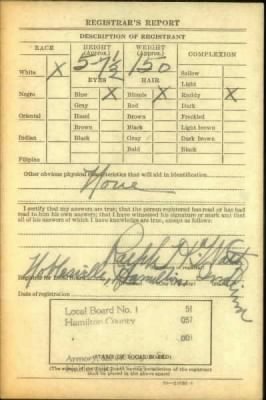 REGISTRAR'S REPORT
DESCRIPTION OF REGISTRANT
RACE HEIGHT (Approx.) WEIGHT (Approx.) COMPLEXION
5-7½ 150
White X Sallow
EYES HAIR Light
Negro Blue X Blonde X Ruddy X
Gray Red Dark
Oriental Hazel Brown Freckled
Brown Black Light brown
Indian Black Gray Dark brown
Bald Black
Filipino
Other obvious physical characteristics that will aid in identification
None
I certify that my answers are true; that the person registered has read or has had
read to him his own answers; that I have witnessed his signature or mark and that
all of his answers of which I have knowledge are true, except as follows:
Ralph
Registrar for Local Board
Noblesville, Hamilton, Ind
Date of registration
Local Board No. 1 51
Hamilton County 057
001
Armory,
(STAMP OF LOCAL BOARD)
(The stamp of the Local Board having jurisdiction of the registrant
shall be placed in the above space)